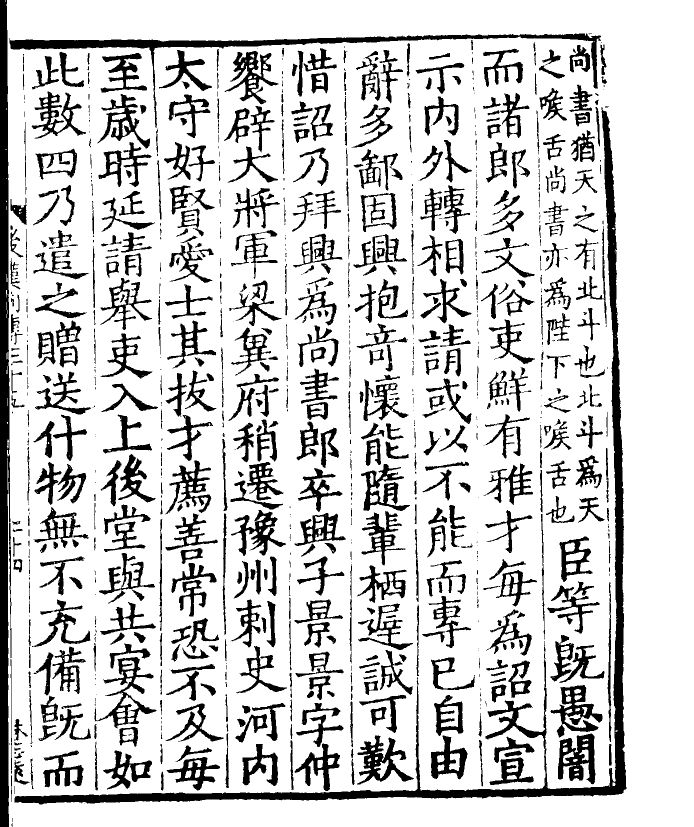 尚書猶天之有北斗也北斗爲天
之喉舌尚書亦爲陛下之喉舌也
臣等旣愚闇
而諸郎多文俗吏鮮有雅才每爲詔文宣
示内外轉相求請或以不能而專已自由
辭多鄙固興抱奇懷能隨輩栖遲誠可歎
惜詔乃拜興爲尚書郎卒興子景景字仲
饗辟大將軍梁兾府稍遷豫州刺史河内
太守好賢愛士其拔才薦善常恐不及每
至歳時延請舉吏入上後堂與共宴會如
此數四乃遣之贈送什物無不充備旣而
後漢列傳三十五
二十四